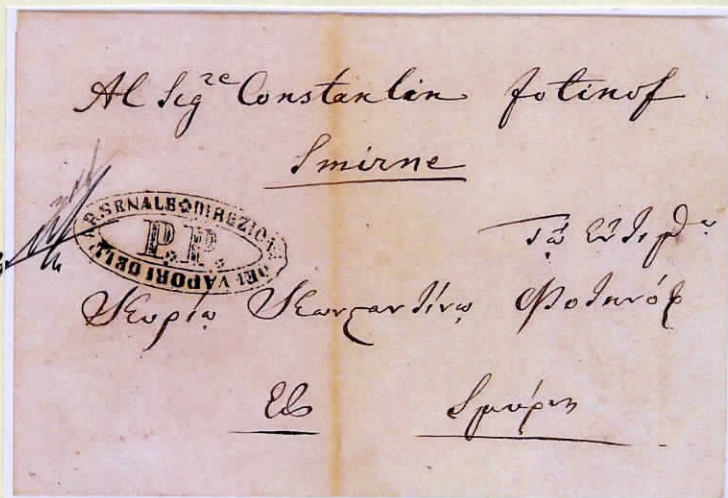 Al Sig.re Constantin Fotinof
Smirne
ARSENALE DIREZIONE DEI VAPORI DELL'
P.P.
Τῷ
Κυρίῳ Κωνσταντίνῳ Φωτινόφ
Εἰς Σμύρνην